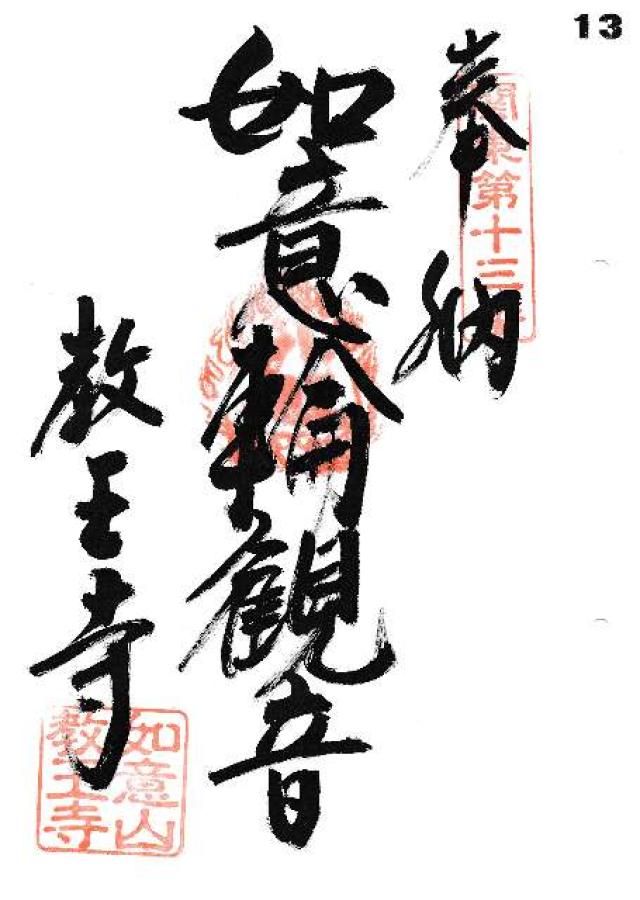 13
奉納
関東第十三
如意輪観音
教王寺
如意山
教王寺